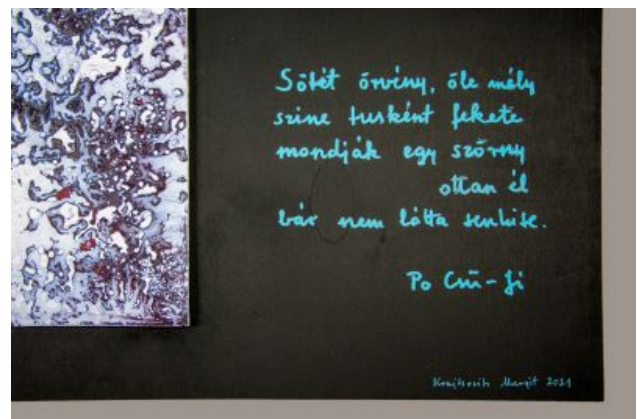 Sötét örvény, öle mély
szine tusként fekete
mondják egy szörny
ottan él
bár nem látta senkise.
Po Csü-ji
Krajtsovits Margit 2021